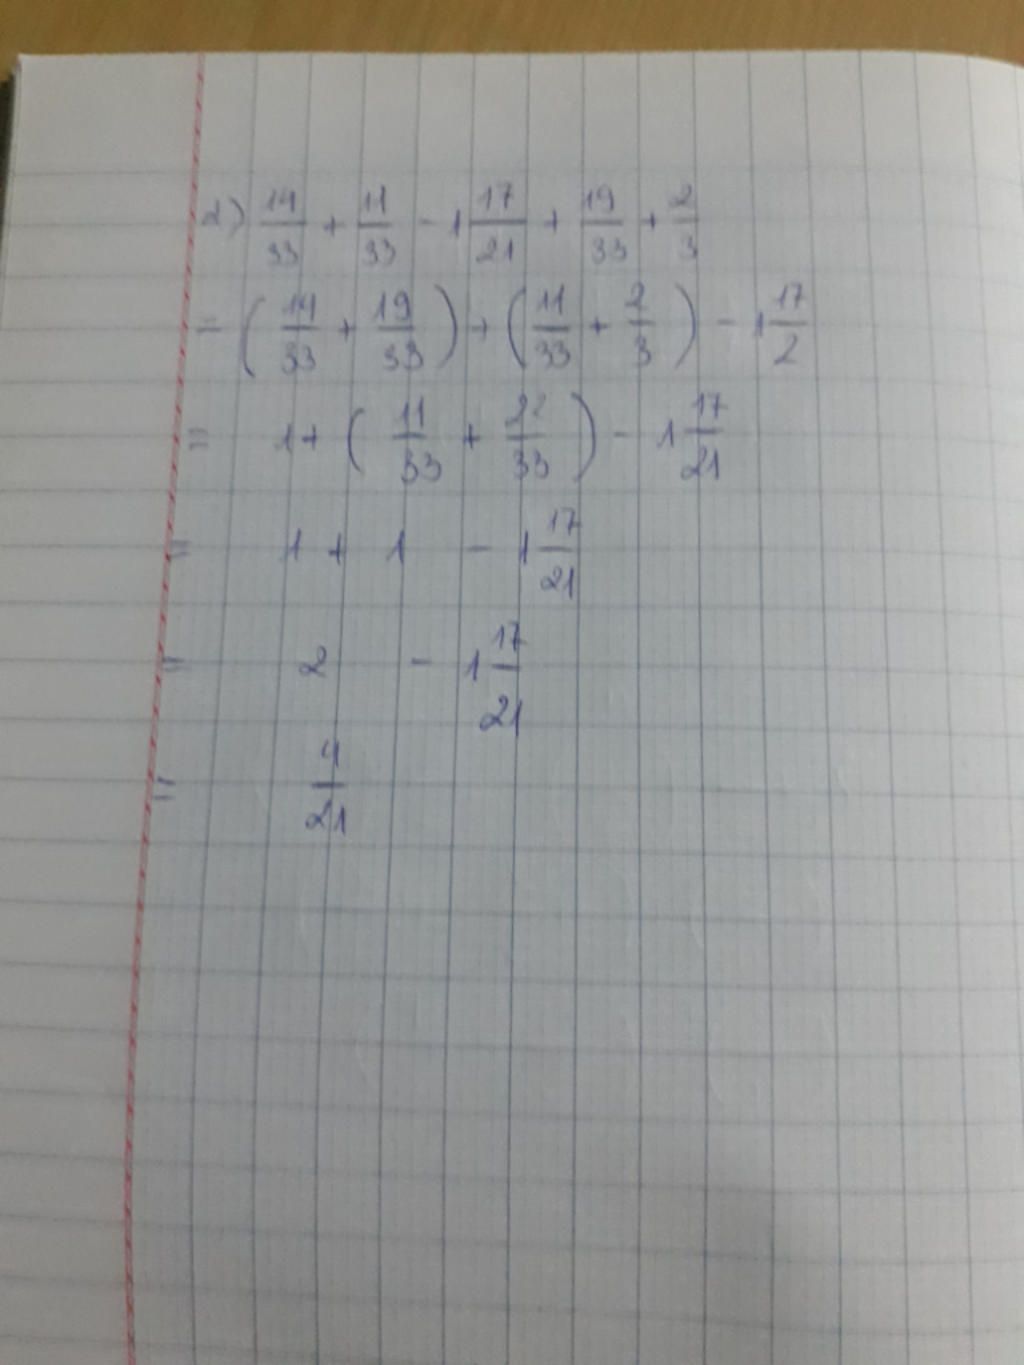 2) 14/33 + 11/33 - 1 17/21 + 19/33 + 2/3
= (14/33 + 19/33) + (11/33 + 2/3) - 1 17/2
= 1 + (11/33 + 22/33) - 1 17/21
= 1 + 1 - 1 17/21
= 2 - 1 17/21
= 4/21